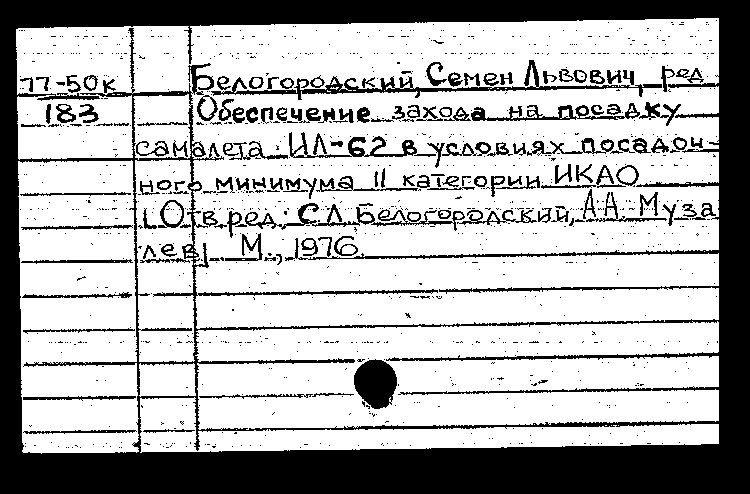 77-50к Белогородский, Семен Львович, ред
183 Обеспечение захода на посадку
самалета ИЛ-62 в условиях посадоч-
ного минимума II категории ИКАО
[Отв.ред.: С Л Белогородский, А А Муза
лев] М., 1976